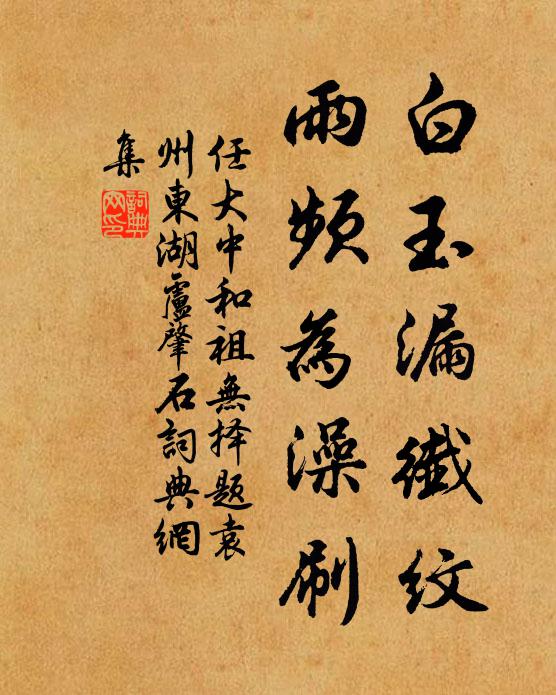 白玉漏纖紋
雨頻為澡刷
任大中和祖無择題袁
州東湖盧肇石詞典網
集
詞典網印